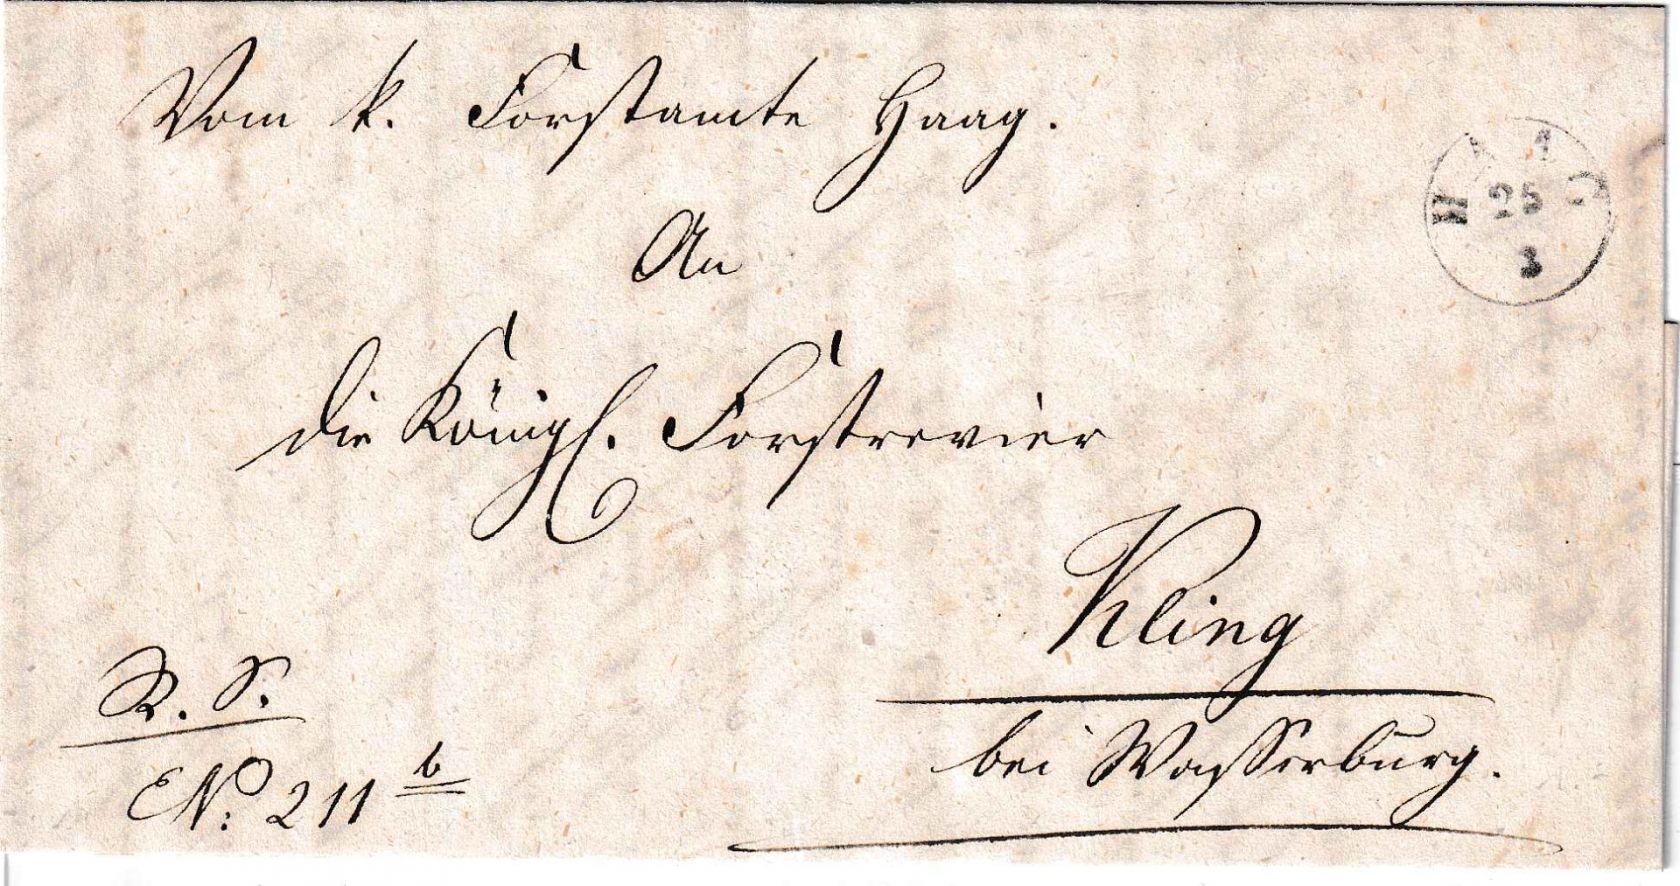 Vom k. Forstamte Haag.
HAAG
25
3
An
die Königl. Forstrevier
Kling
bei Wasserburg.
R. S.
E No. 211 b